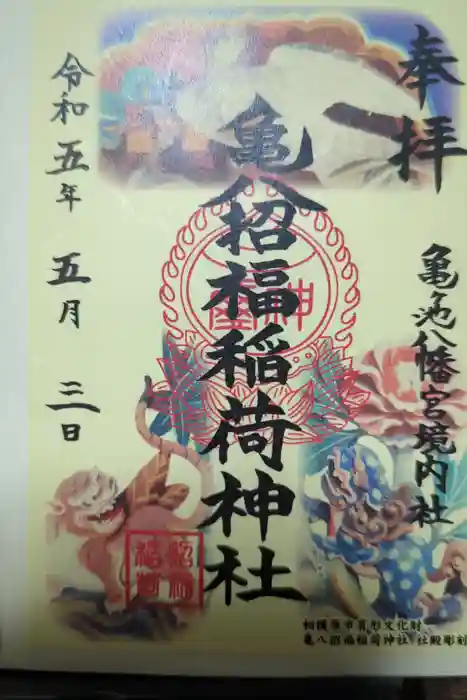 奉拝
亀池八幡宮境内社
亀八招福稲荷神社
令和五年 五月 三日
相模原市有形文化財
亀八招福稲荷神社 社殿彫刻